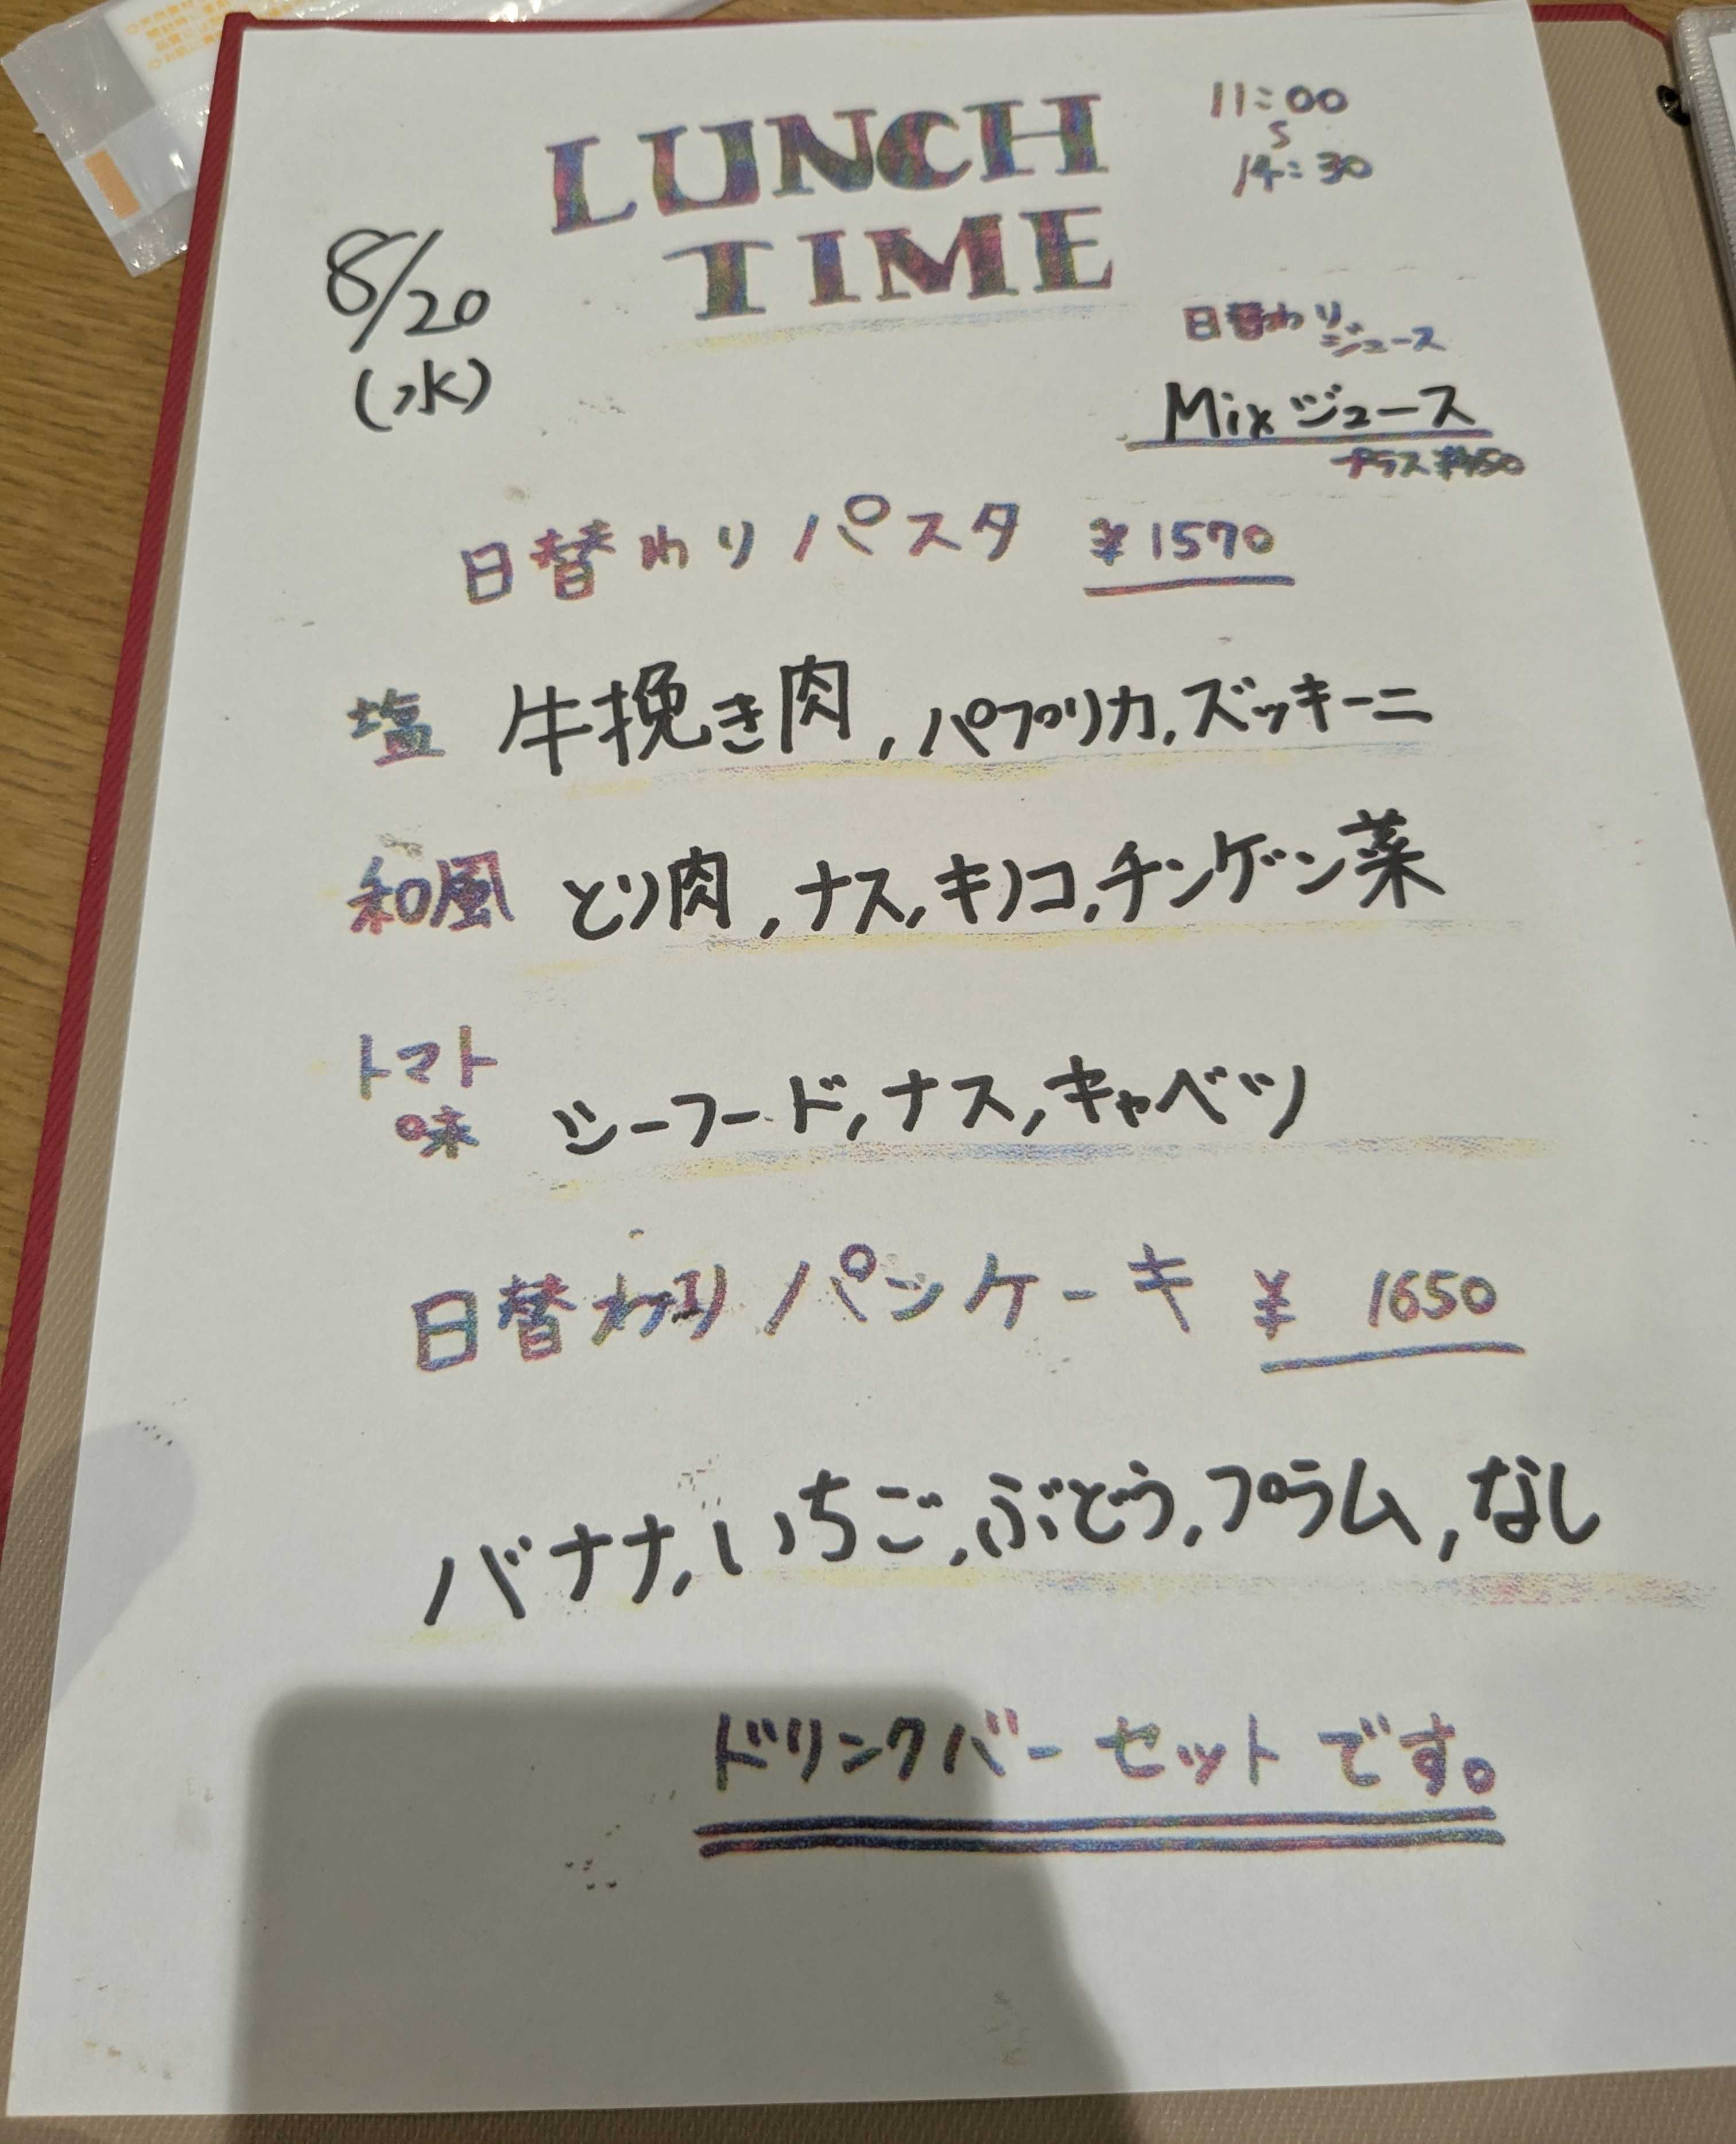 LUNCH
TIME
11:00
〜
14:30
8/20
(水)
日替わり
ジュース
Mixジュース
プラス
日替わりパスタ ¥1570
塩 牛挽き肉,パプリカ,ズッキーニ
和風 とり肉,ナス,キノコ,チンゲン菜
トマト
味 シーフード,ナス,キャベツ
日替わりパンケーキ ¥1650
バナナ,いちご,ぶどう,プラム,なし
ドリンクバーセットです。